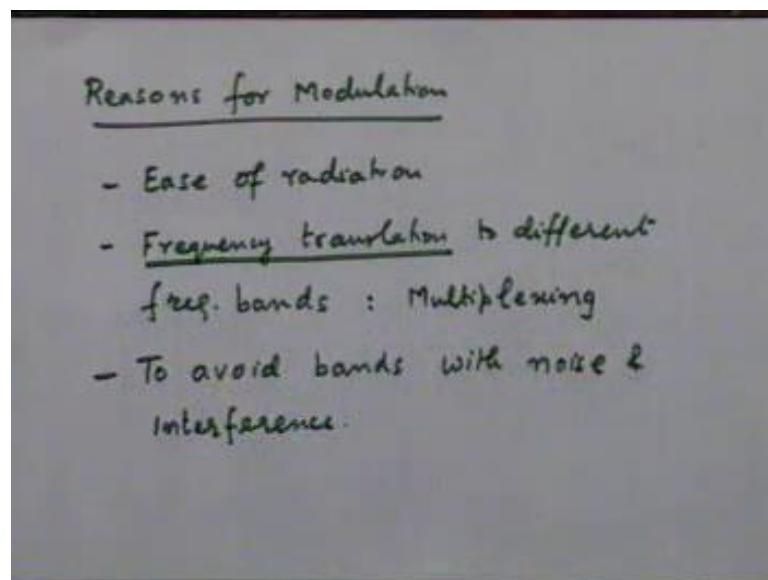 Reasons for Modulation
- Ease of radiation
- Frequency translation to different
freq. bands : Multiplexing
- To avoid bands with noise &
interference.